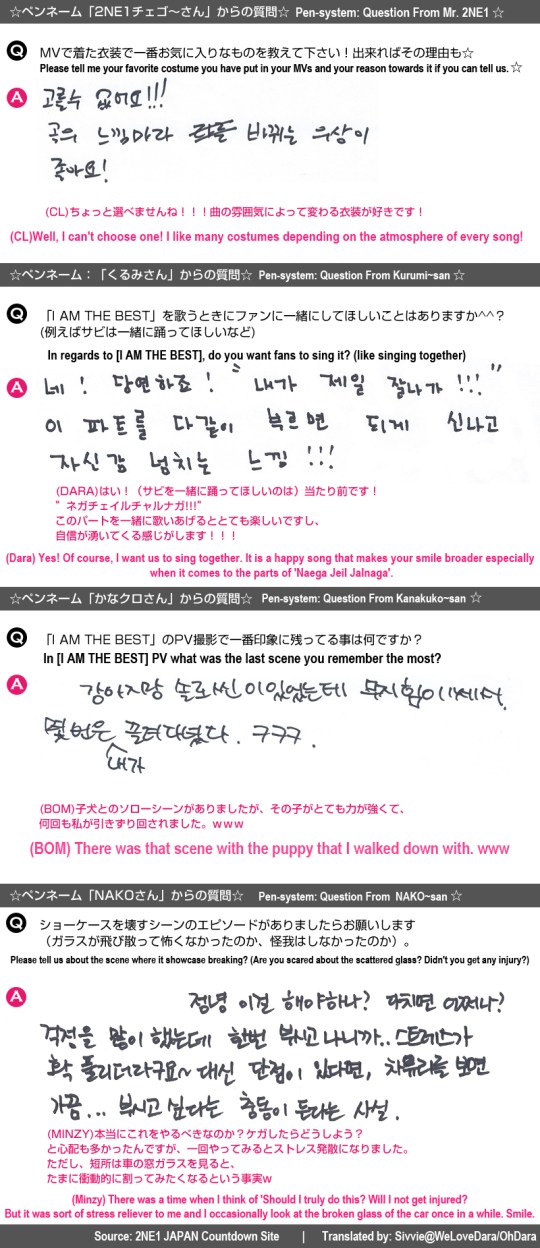 ☆ペンネーム「2NE1チェゴ～さん」からの質問☆ Pen-system: Question From Mr. 2NE1 ☆
Q MVで着た衣装で一番お気に入りなものを教えて下さい！出来ればその理由も☆
Please tell me your favorite costume you have put in your MVs and your reason towards it if you can tell us. ☆
A 고를수 없어요!!!
곡의 느낌마다 바뀌는 의상이
좋아요!
(CL)ちょっと選べませんね！！！曲の雰囲気によって変わる衣装が好きです！
(CL)Well, I can't choose one! I like many costumes depending on the atmosphere of every song!
☆ペンネーム：「くるみさん」からの質問☆ Pen-system: Question From Kurumi~san ☆
Q 「I AM THE BEST」を歌うときにファンに一緒にしてほしいことはありますか^^？
(例えばサビは一緒に踊ってほしいなど)
In regards to [I AM THE BEST], do you want fans to sing it? (like singing together)
A 네! 당연하죠! "내가 제일 잘나가!!!"
이 파트를 다같이 부르면 되게 신나고
자신감 넘치는 느낌!!!
(DARA)はい！（サビを一緒に踊ってほしいのは）当たり前です！
”ネガチェイルチャルナガ!!!”
このパートを一緒に歌いあげるととても楽しいですし、
自信が湧いてくる感じがします！！！
(Dara) Yes! Of course, I want us to sing together. It is a happy song that makes your smile broader especially
when it comes to the parts of 'Naega Jeil Jalnaga'.
☆ペンネーム「かなクロさん」からの質問☆ Pen-system: Question From Kanakuko~san ☆
Q 「I AM THE BEST」のPV撮影で一番印象に残ってる事は何ですか？
In [I AM THE BEST] PV what was the last scene you remember the most?
A 강아지랑 솔로씬이있었는데 무지힘이쎄서
몇번은 끌려다녔다. ㅋㅋㅋ.
내가
(BOM)子犬とのソローシーンがありましたが、その子がとても力が強くて、
何回も私が引きずり回されました。ｗｗｗ
(BOM) There was that scene with the puppy that I walked down with. www
☆ペンネーム「NAKOさん」からの質問☆ Pen-system: Question From NAKO~san ☆
Q ショーケースを壊すシーンのエピソードがありましたらお願いします
（ガラスが飛び散って怖くなかったのか、怪我はしなかったのか）。
Please tell us about the scene where it showcase breaking? (Are you scared about the scattered glass? Didn't you get any injury?)
A 정녕 이걸 해야하나? 다치면 어쩌나?
걱정을 많이 했는데 한번 부시고 나니까.. 스트레스가
확 풀리더라구요~ 대신 단점이 있다면, 차유리를 보면
가끔... 부시고 싶다는 충동이 든다는 사실.
(MINZY)本当にこれをやるべきなのか？ケガしたらどうしよう？
と心配も多かったんですが、一回やってみるとストレス発散になりました。
ただし、短所は車の窓ガラスを見ると、
たまに衝動的に割ってみたくなるという事実w
(Minzy) There was a time when I think of 'Should I truly do this? Will I not get injured?
But it was sort of stress reliever to me and I occasionally look at the broken glass of the car once in a while. Smile.
Source: 2NE1 JAPAN Countdown Site | Translated by: Sivvie@WeLoveDara/OhDara